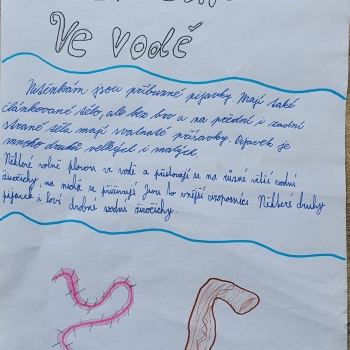 Ve vodě
Nitěnkám jsou příbuzné pijavky. Mají také
článkované tělo, ale bez bradavek a na přední i zadní
straně těla mají svalnaté přísavky. Pijavek je
mnoho druhů velkých i malých.
Některé volně plovou ve vodě a přichytají se na různé větší vodní
živočichy, na nichž se přiživují. Jsou to vnější cizopasníci. Některé druhy
pijavek i loví drobné vodní živočichy.